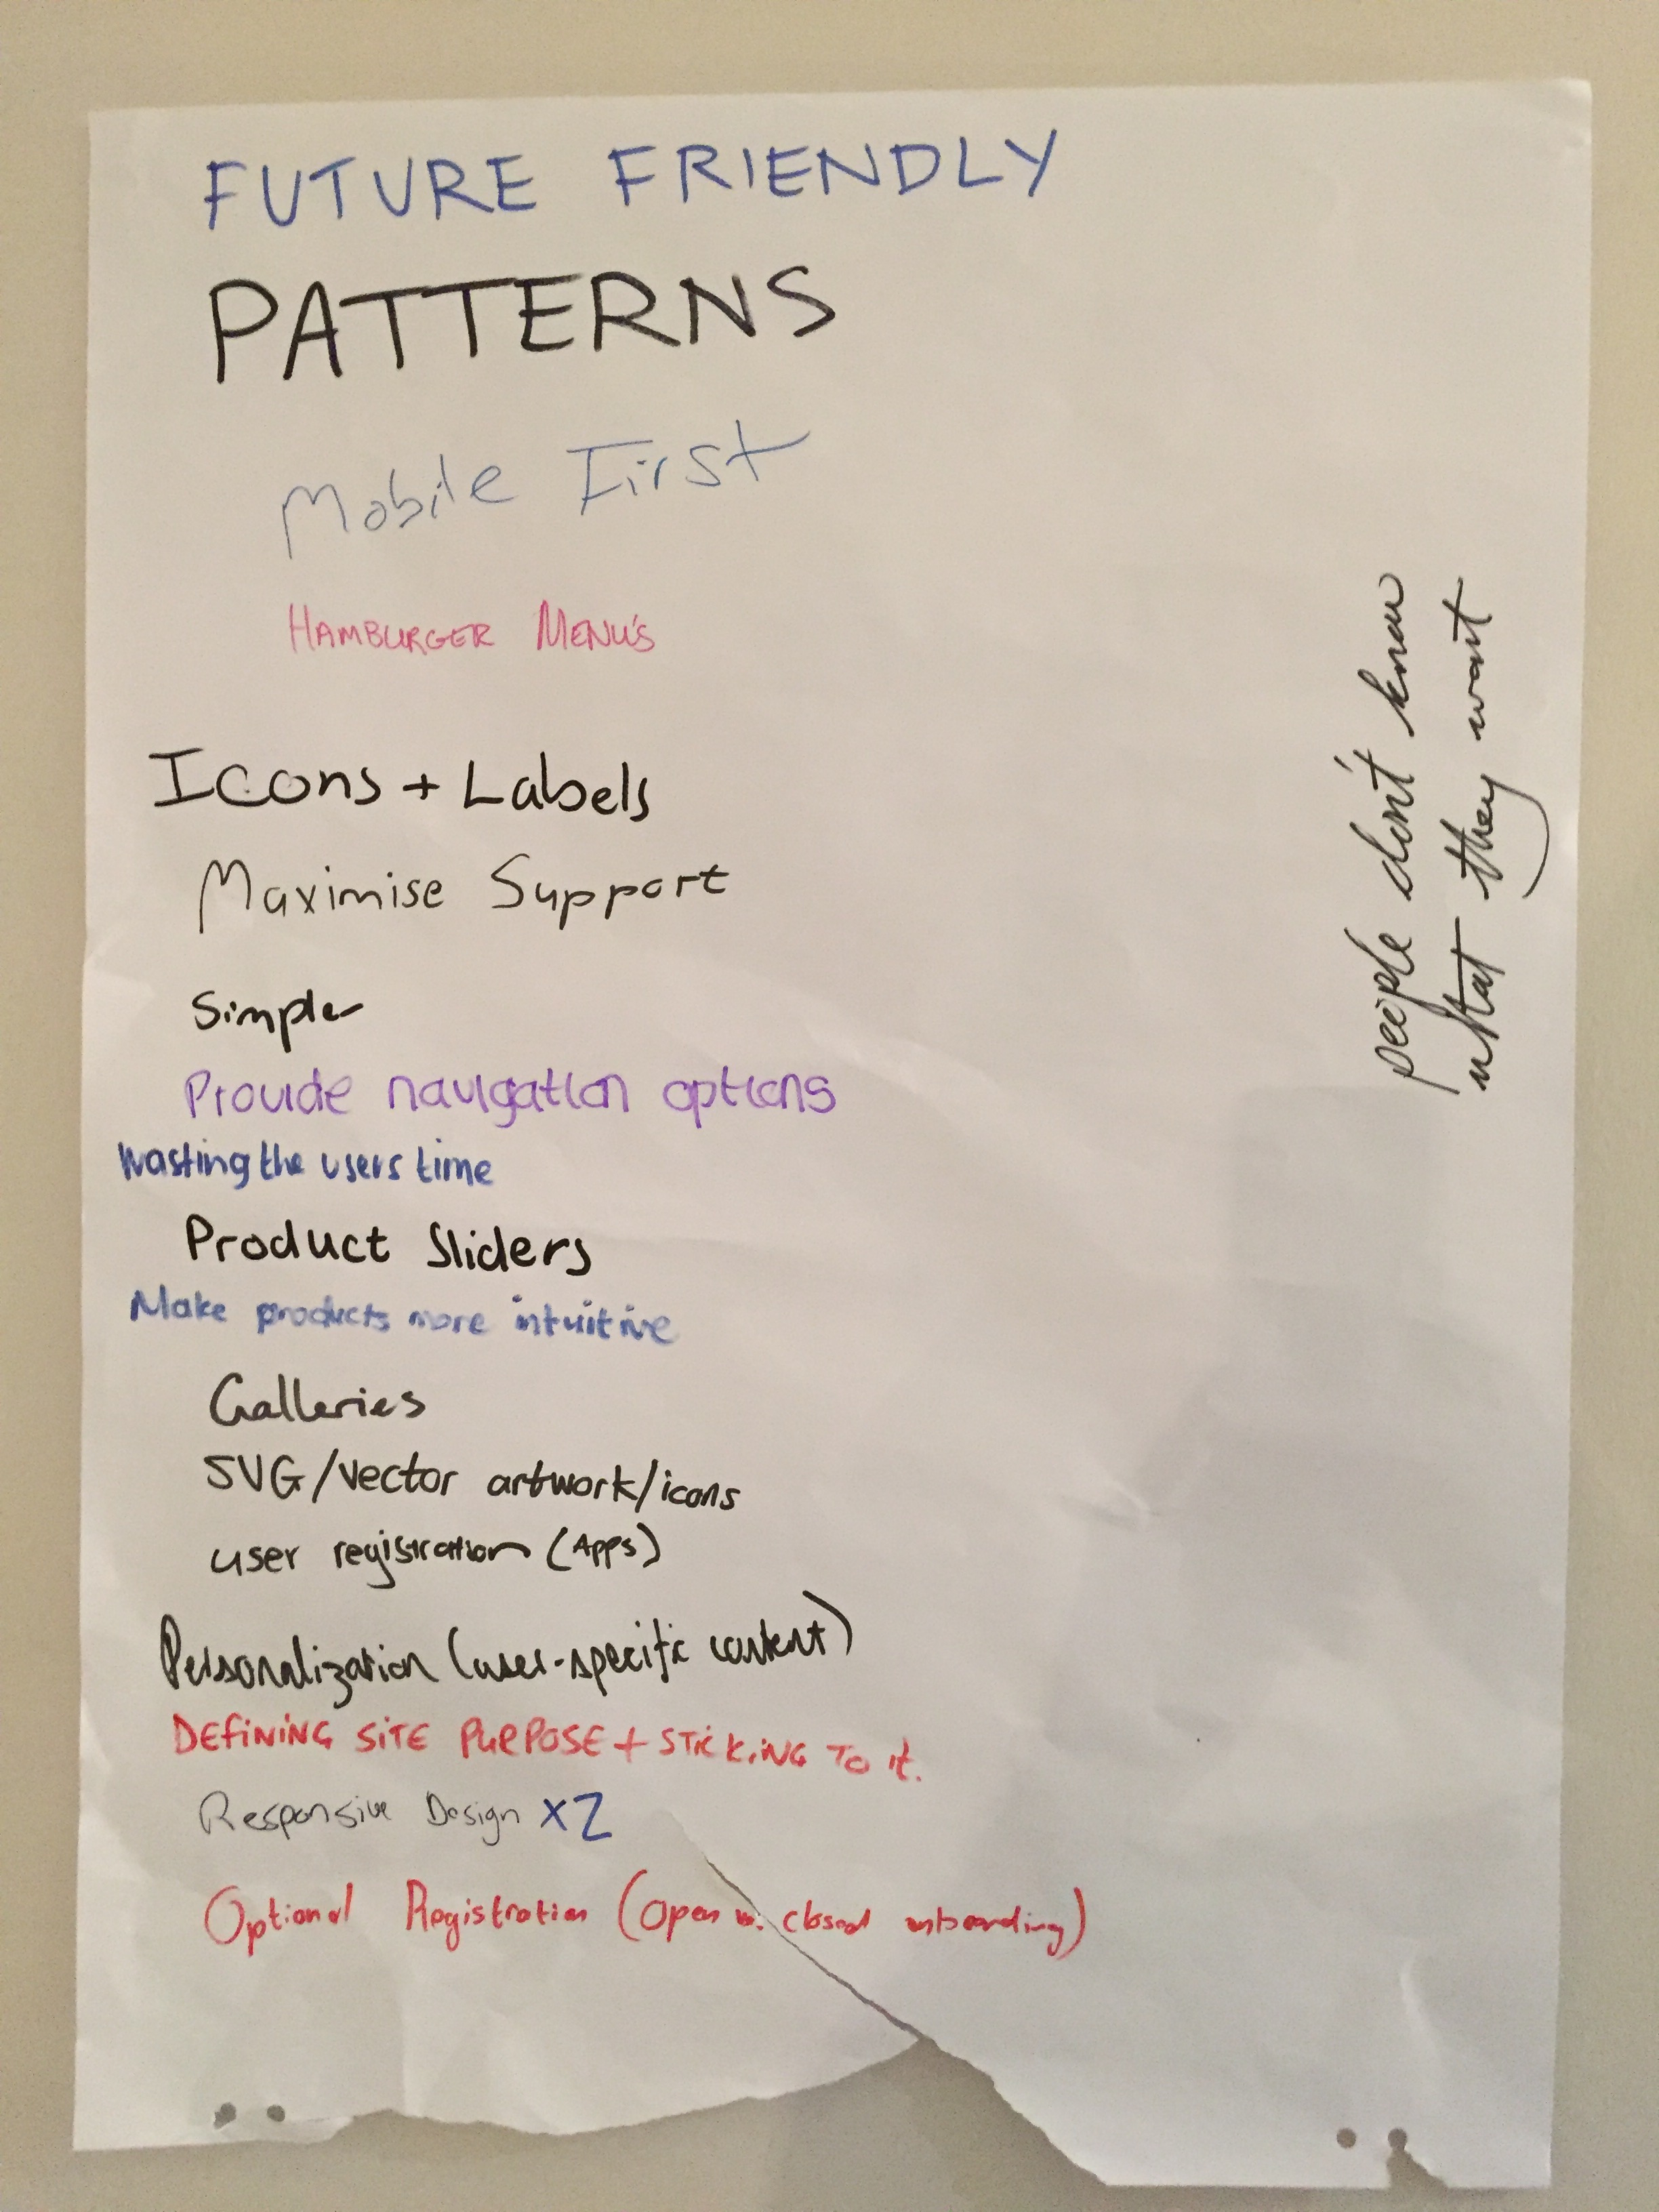 FUTURE FRIENDLY
PATTERNS
Mobile First
HAMBURGER MENU'S
Icons + Labels
Maximise Support
Simpler
Provide navigation options
Wasting the users time
Product Sliders
Make products more intuitive
Galleries
SVG/vector artwork/icons
user registration (Apps)
Personalization (user-specific content)
DEFINING SITE PURPOSE + STICKING TO it.
Responsive Design x2
Optional Registration (Open vs. closed onboarding)
people don't know
what they want